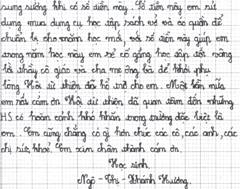 sung sướng khi có số tiền này. Số tiền này em sử
dụng mua dụng cụ học tập sách vở và áo quần để
chuẩn bị cho năm học mới, với số tiền này giúp em
trong năm học này em sẽ cố gắng học tập tốt vâng
lời thầy cô giáo và cha mẹ ông bà để khỏi phụ
lòng Hội từ thiện đã hỗ trợ cho em. Một lần nữa
em rất cảm ơn Hội từ thiện đã quan tâm đến những
HS có hoàn cảnh khó khăn trong trường đặc biệt là
em. Em cũng chẳng có gì hơn chúc các cô, các anh, các
chị sức khoẻ. Em xin chân thành cảm ơn.
Học sinh.
Ngô - Thị - Khánh Hương.